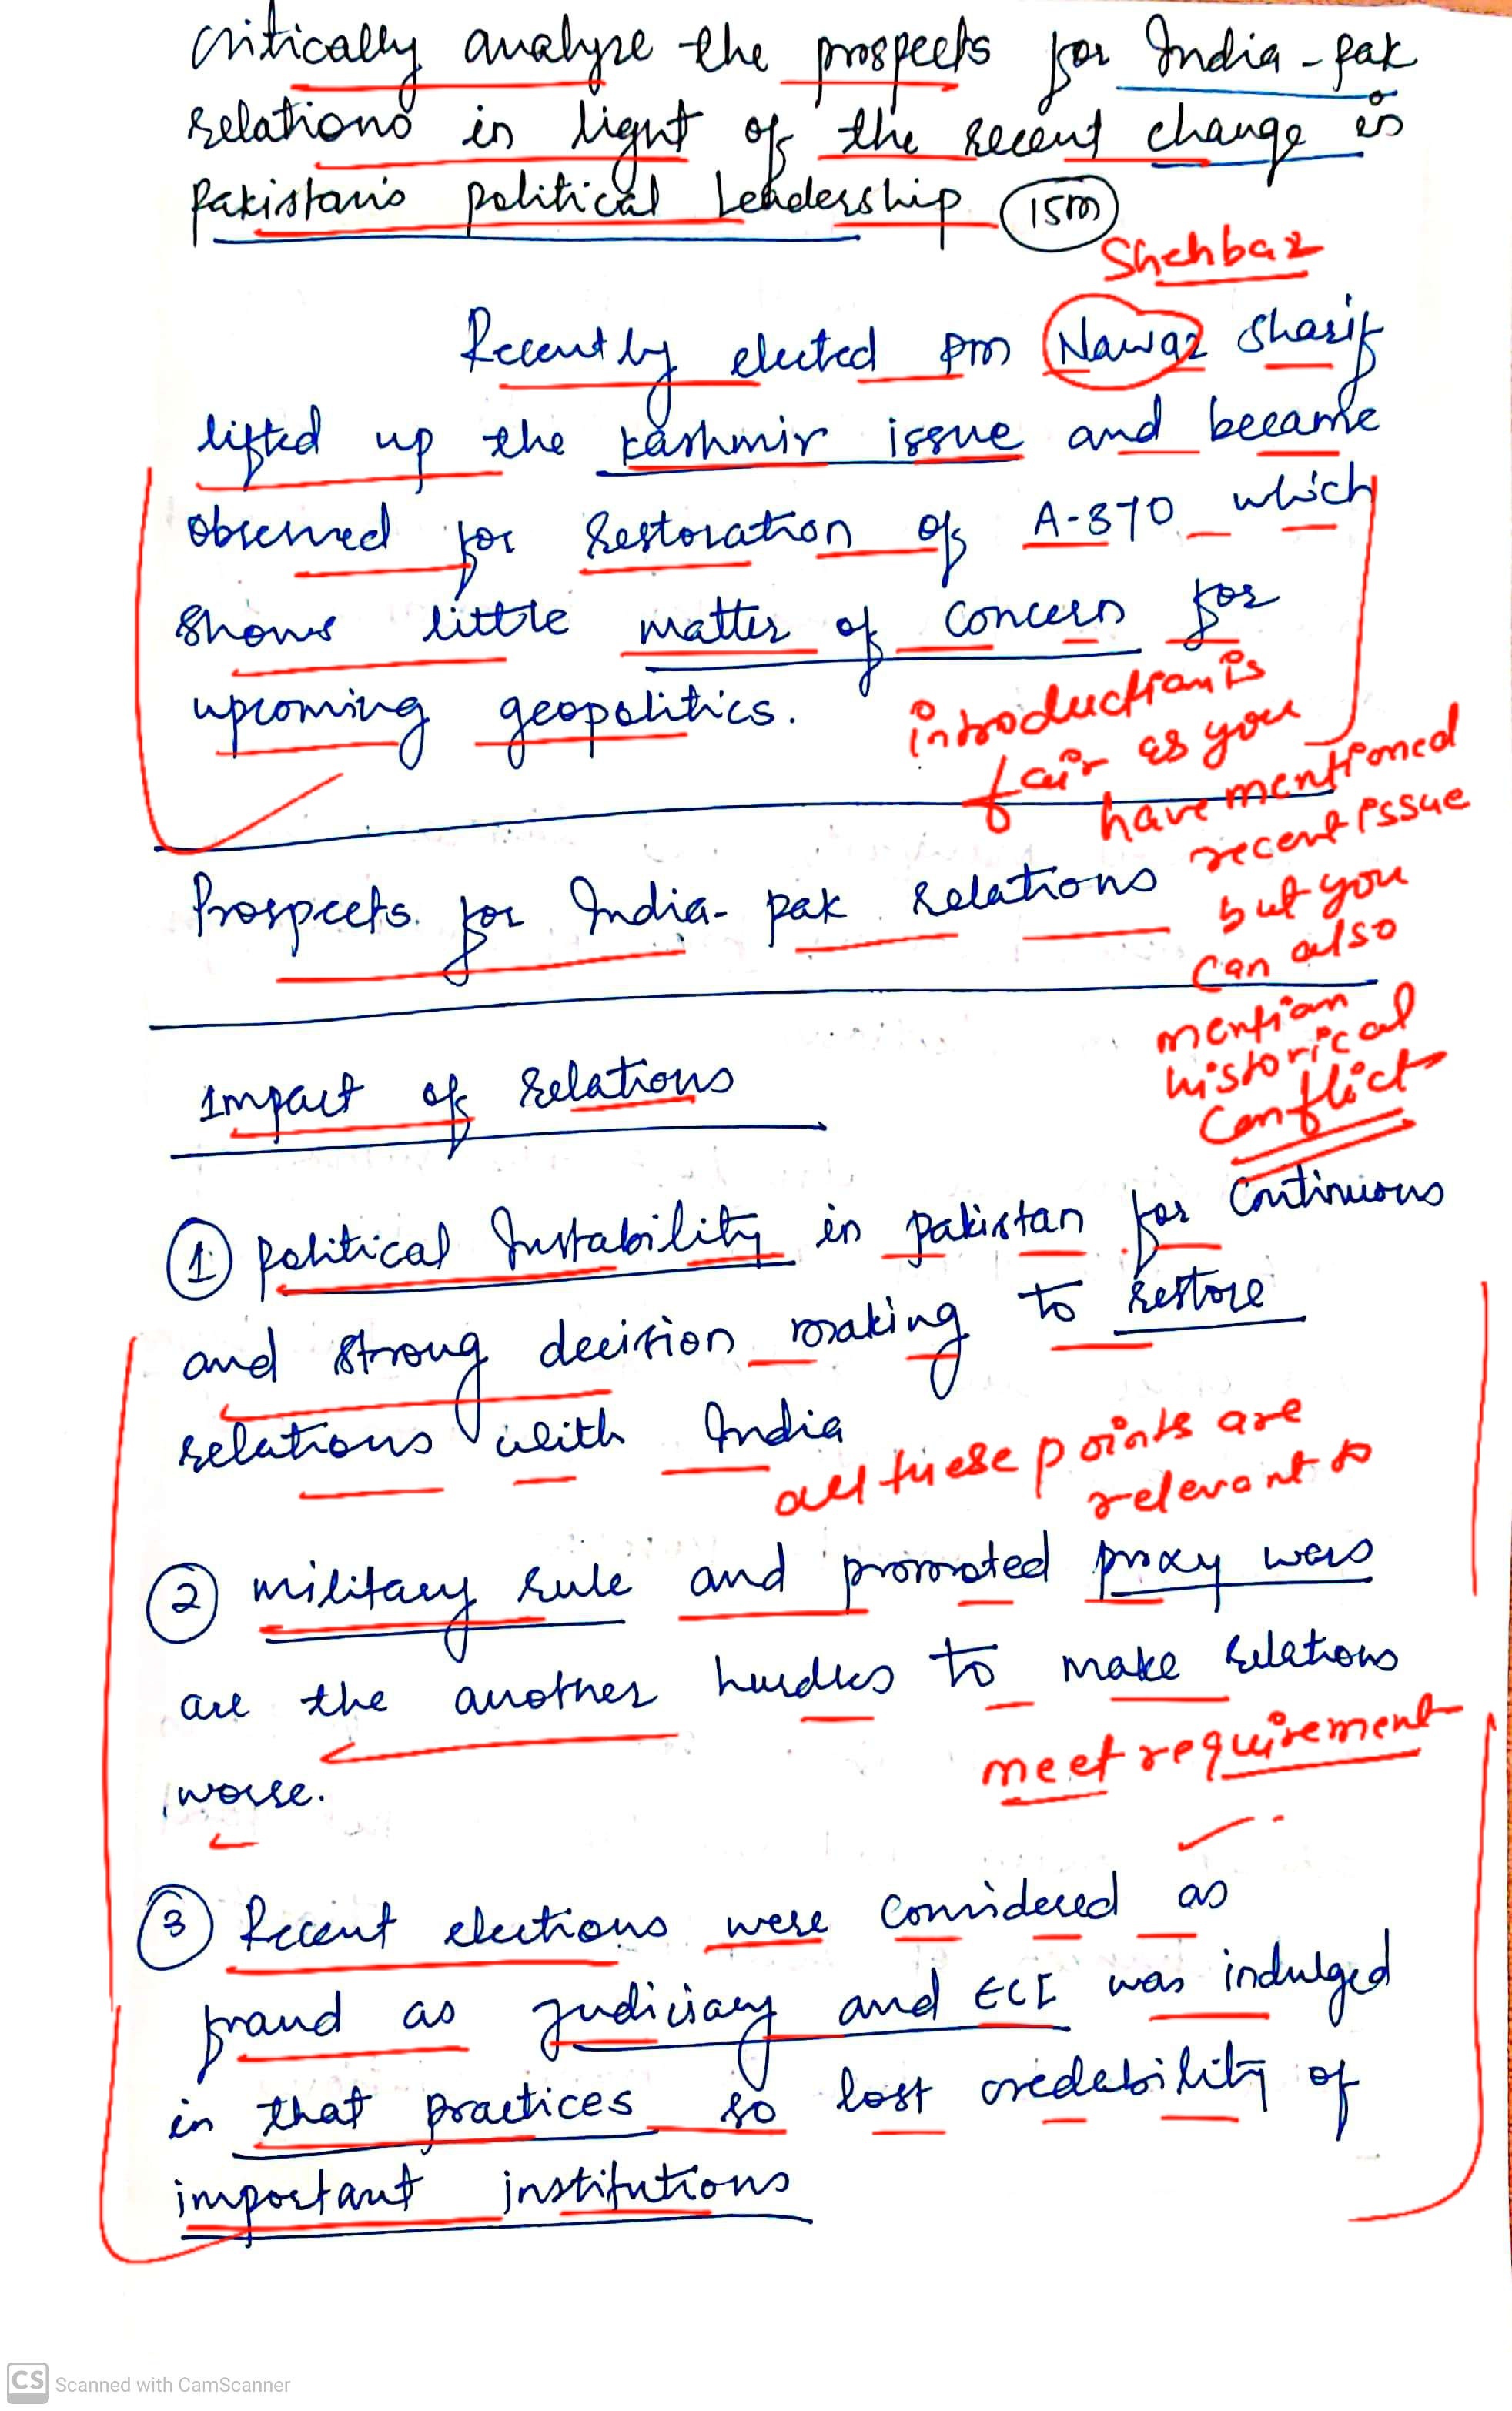 critically analyze the prospects for India-pak
relations in light of the recent change in
Pakistan's political Leadership (15m)
Shehbaz
Recently elected pm Nawaz Sharif
lifted up the Kashmir issue and became
obsessed for Restoration of A-370 which
shows little matter of concern for
upcoming geopolitics.
introduction is
fair as you
have mentioned
recent issue
but you
can also
mention
historical
conflict
Prospects for India-pak relations
Impact of relations
① political Instability in pakistan for continuous
and strong decision making to restore
relations with India
all these points are
relevant to
② military rule and promoted proxy wars
are the another hurdles to make relations
worse.
meet requirement
③ Recent elections were considered as
fraud as judiciary and ECI was indulged
in that practices so lost credebility of
important institutions
CS Scanned with CamScanner